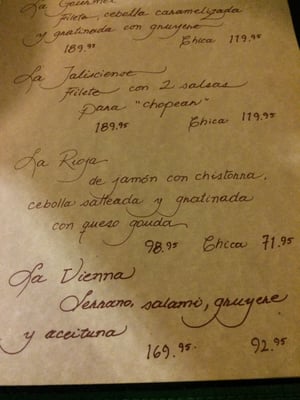 La Gourmet
Filete, cebolla caramelizada
y gratinada con gruyere
189.95 Chica 119.95
La Jalisciense
Filete con 2 salsas
para "chopear"
189.95 Chica 119.95
La Rioja
de jamón con chistorra,
cebolla salteada y gratinada
con queso gouda
98.95 Chica 71.95
La Vienna
Serrano, salami, gruyere
y aceituna
169.95. 92.95